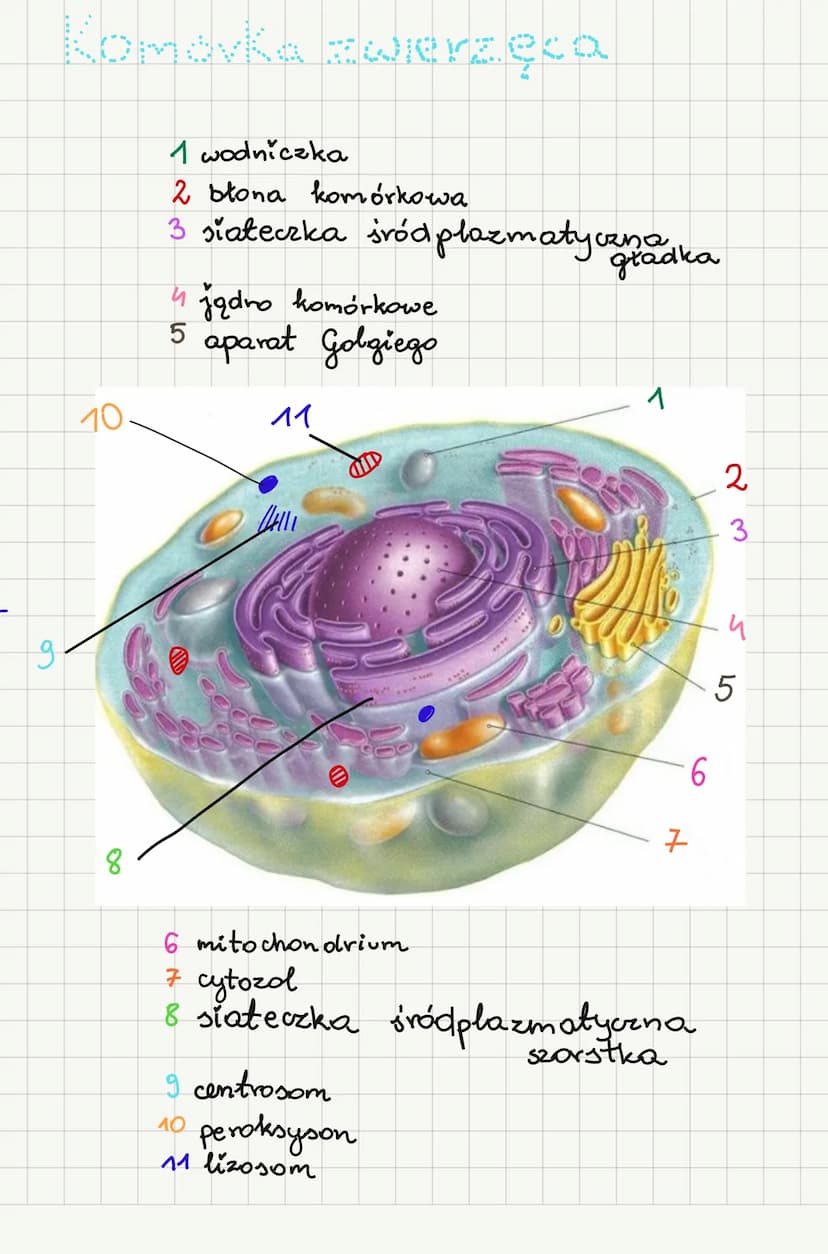 Komórka zwierzęca
1 wodniczka
2 błona komórkowa
3 siateczka śródplazmatyczna
gładka
4 jądro komórkowe
5 aparat Golgiego
10
11
1
2
3
9
4
5
6
7
8
6 mitochondrium
7 cytozol
8 siateczka śródplazmatyczna
szorstka
9 centrosom
10 peroksyson
11 lizosom